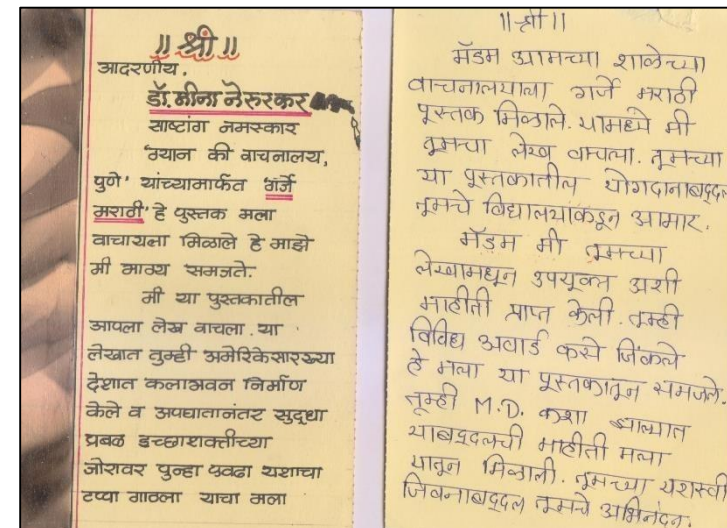 ॥ श्री ॥
आदरणीय,
डॉ. मीना नेरुरकर
साष्टांग नमस्कार
'ग्यान की वाचनालय,
पुणे' यांच्यामार्फत 'गर्जे
मराठी' हे पुस्तक मला
वाचायला मिळाले हे माझे
मी भाग्य समजते.
मी या पुस्तकातील
आपला लेख वाचला. या
लेखात तुम्ही अमेरिकेसारख्या
देशात कलाभवन निर्माण
केले व अपघातानंतर सुद्धा
प्रबळ इच्छाशक्तीच्या
जोरावर पुन्हा एवढा यशाचा
टप्पा गाठला याचा मला
॥ श्री ॥
मॅडम आमच्या शाळेच्या
वाचनालयाला गर्जे मराठी
पूस्तक मिळाले. यामध्ये मी
तूमचा लेख वाचला. तूमच्या
या पूस्तकातील योगदानाबद्दल
तूमचे विद्यालयाकडून आभार.
मॅडम मी तूमच्या
लेखामधून उपयूक्त अशी
माहीती प्राप्त केली. तूम्ही
विविध अवार्ड कसे जिंकले
हे मला या पूस्तकातून समजले.
तूम्ही M.D. कशा झाल्यात
याबद्दलची माहीती मला
यातून मिळाली. तूमच्या यशस्वी
जिवनाबद्दल तूमचे अभिनंदन.